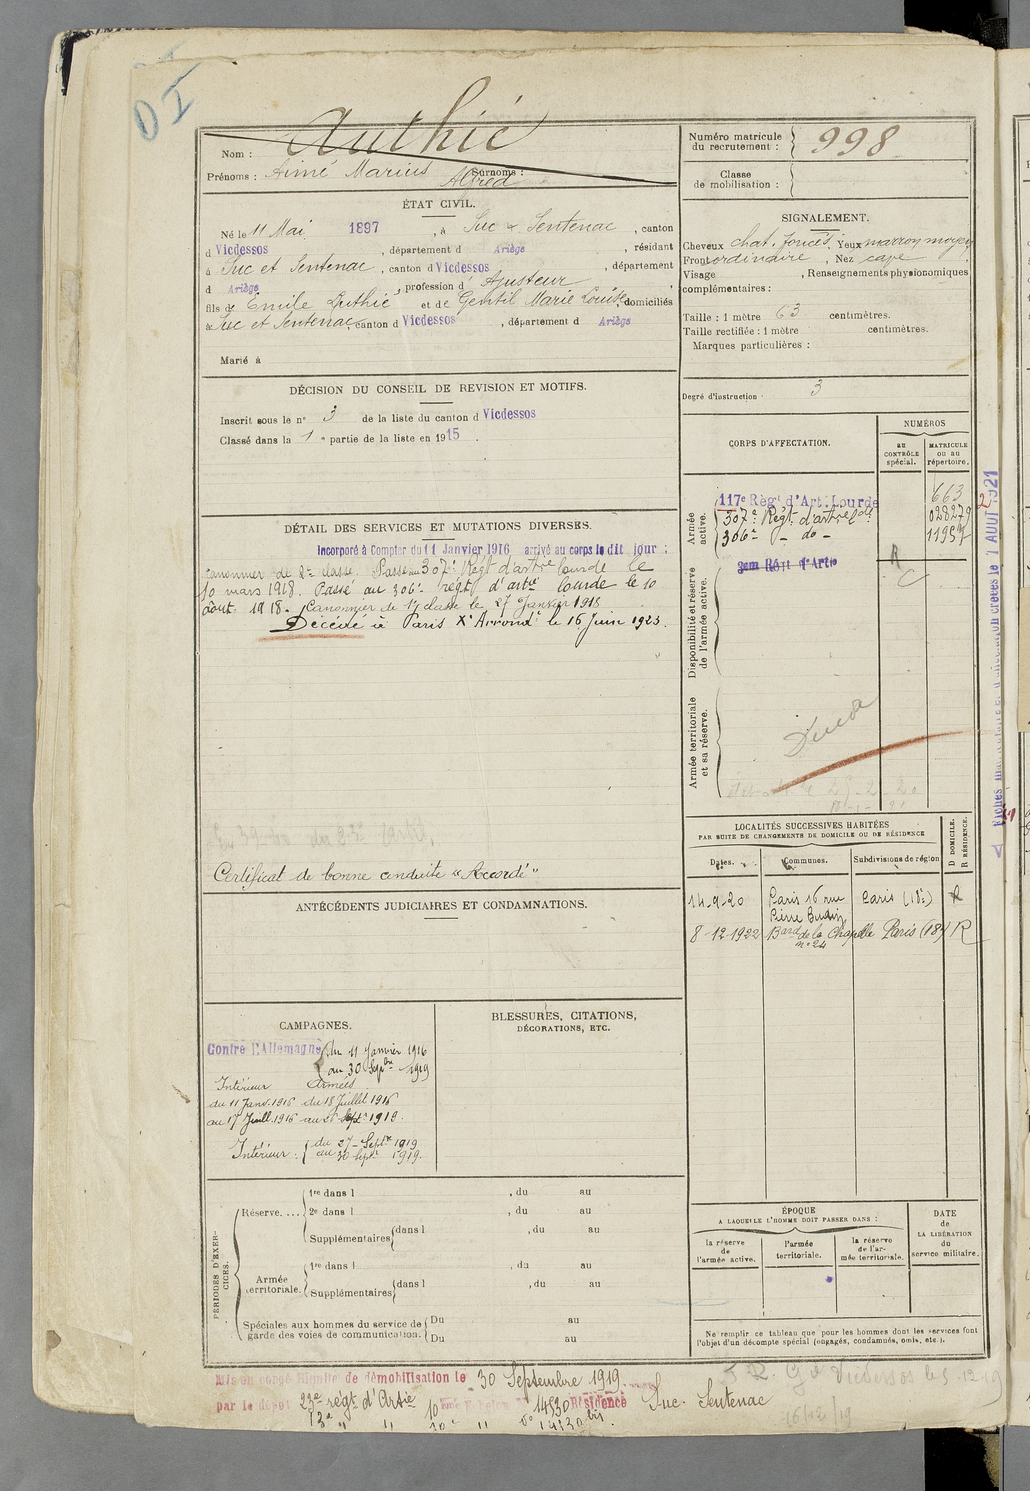 OI
Authié
Nom :
Prénoms : Aimé Marius Surnoms :
Alfred
Numéro matricule
du recrutement : 998
Classe
de mobilisation :
ÉTAT CIVIL.
Né le 11 Mai 1897, à Suc & Sentenac, canton
d Vicdessos, département d Ariège, résidant
à Suc et Sentenac, canton d Vicdessos, département
d Ariège, profession d Ajusteur,
fils de Emile Authié et de Gentil Marie Louise domiciliés
à Suc et Sentenac canton d Vicdessos, département d Ariège
Marié à
SIGNALEMENT.
Cheveux chat. foncés, Yeux marron moyen
Front ordinaire, Nez cave.
Visage , Renseignements physionomiques
complémentaires :
Taille : 1 mètre 63 centimètres.
Taille rectifiée : 1 mètre centimètres.
Marques particulières :
Degré d'instruction 3
DÉCISION DU CONSEIL DE REVISION ET MOTIFS.
Inscrit sous le n° 3 de la liste du canton d Vicdessos
Classé dans la 1e partie de la liste en 1915.
DÉTAIL DES SERVICES ET MUTATIONS DIVERSES.
Incorporé à Compter du 11 Janvier 1916 arrivé au corps le dit jour :
canonnier de 2e classe. Passé au 307e Régt d'artie lourde le
10 mars 1918. Passé au 306e régt d'artie lourde le 10
août 1918. Canonnier de 1e classe le 27 Janvier 1918
Décédé à Paris Xe Arrondt le 16 Juin 1923.
Certificat de bonne conduite "Accordé"
CORPS D'AFFECTATION.
NUMÉROS
au
CONTRÔLE
spécial.
MATRICULE
ou au
répertoire.
Armée
active.
117e Régt d'Art. Lourde 663
307e Régt d'artie lde 028279
306e - do - 11957
Disponibilité et réserve
de l'armée active.
R
C
Armée territoriale
et sa réserve.
LOCALITÉS SUCCESSIVES HABITÉES
PAR SUITE DE CHANGEMENTS DE DOMICILE OU DE RÉSIDENCE
D DOMICILE.
R RÉSIDENCE.
Dates. Communes. Subdivisions de région
14-9-20 Paris 16 rue Paris (18e) R
Pierre Budin
8-12-1922 Bard de la Chapelle Paris (18e) R
n° 24
ANTÉCÉDENTS JUDICIAIRES ET CONDAMNATIONS.
CAMPAGNES.
Contre l'Allemagne du 11 Janvier 1916
au 30 Septbre 1919
Intérieur Armées
du 11 Janv. 1916 du 18 Juillet 1916
au 17 Juill. 1916 au 26 Septe 1919.
Intérieur : du 27 Septe 1919
au 30 Septe 1919.
BLESSURES, CITATIONS,
DÉCORATIONS, ETC.
PÉRIODES D'EXER-
CICES.
Réserve....
1re dans l , du au
2e dans l , du au
Supplémentaires dans l , du au
Armée
territoriale.
1re dans l , du au
Supplémentaires dans l , du au
Spéciales aux hommes du service de
garde des voies de communication.
Du au
Du au
ÉPOQUE
A LAQUELLE L'HOMME DOIT PASSER DANS :
la réserve
de
l'armée active.
l'armée
territoriale.
la réserve
de l'ar-
mée territoriale.
DATE
de
LA LIBÉRATION
du
service militaire.
Ne remplir ce tableau que pour les hommes dont les services font
l'objet d'un décompte spécial (engagés, condamnés, omis, etc.).
Mis en congé illimité de démobilisation le 30 Septembre 1919
par le dépôt 23e régt d'Artie 14530 Résidence Suc. Sentenac
Vicdessos
16/12/19